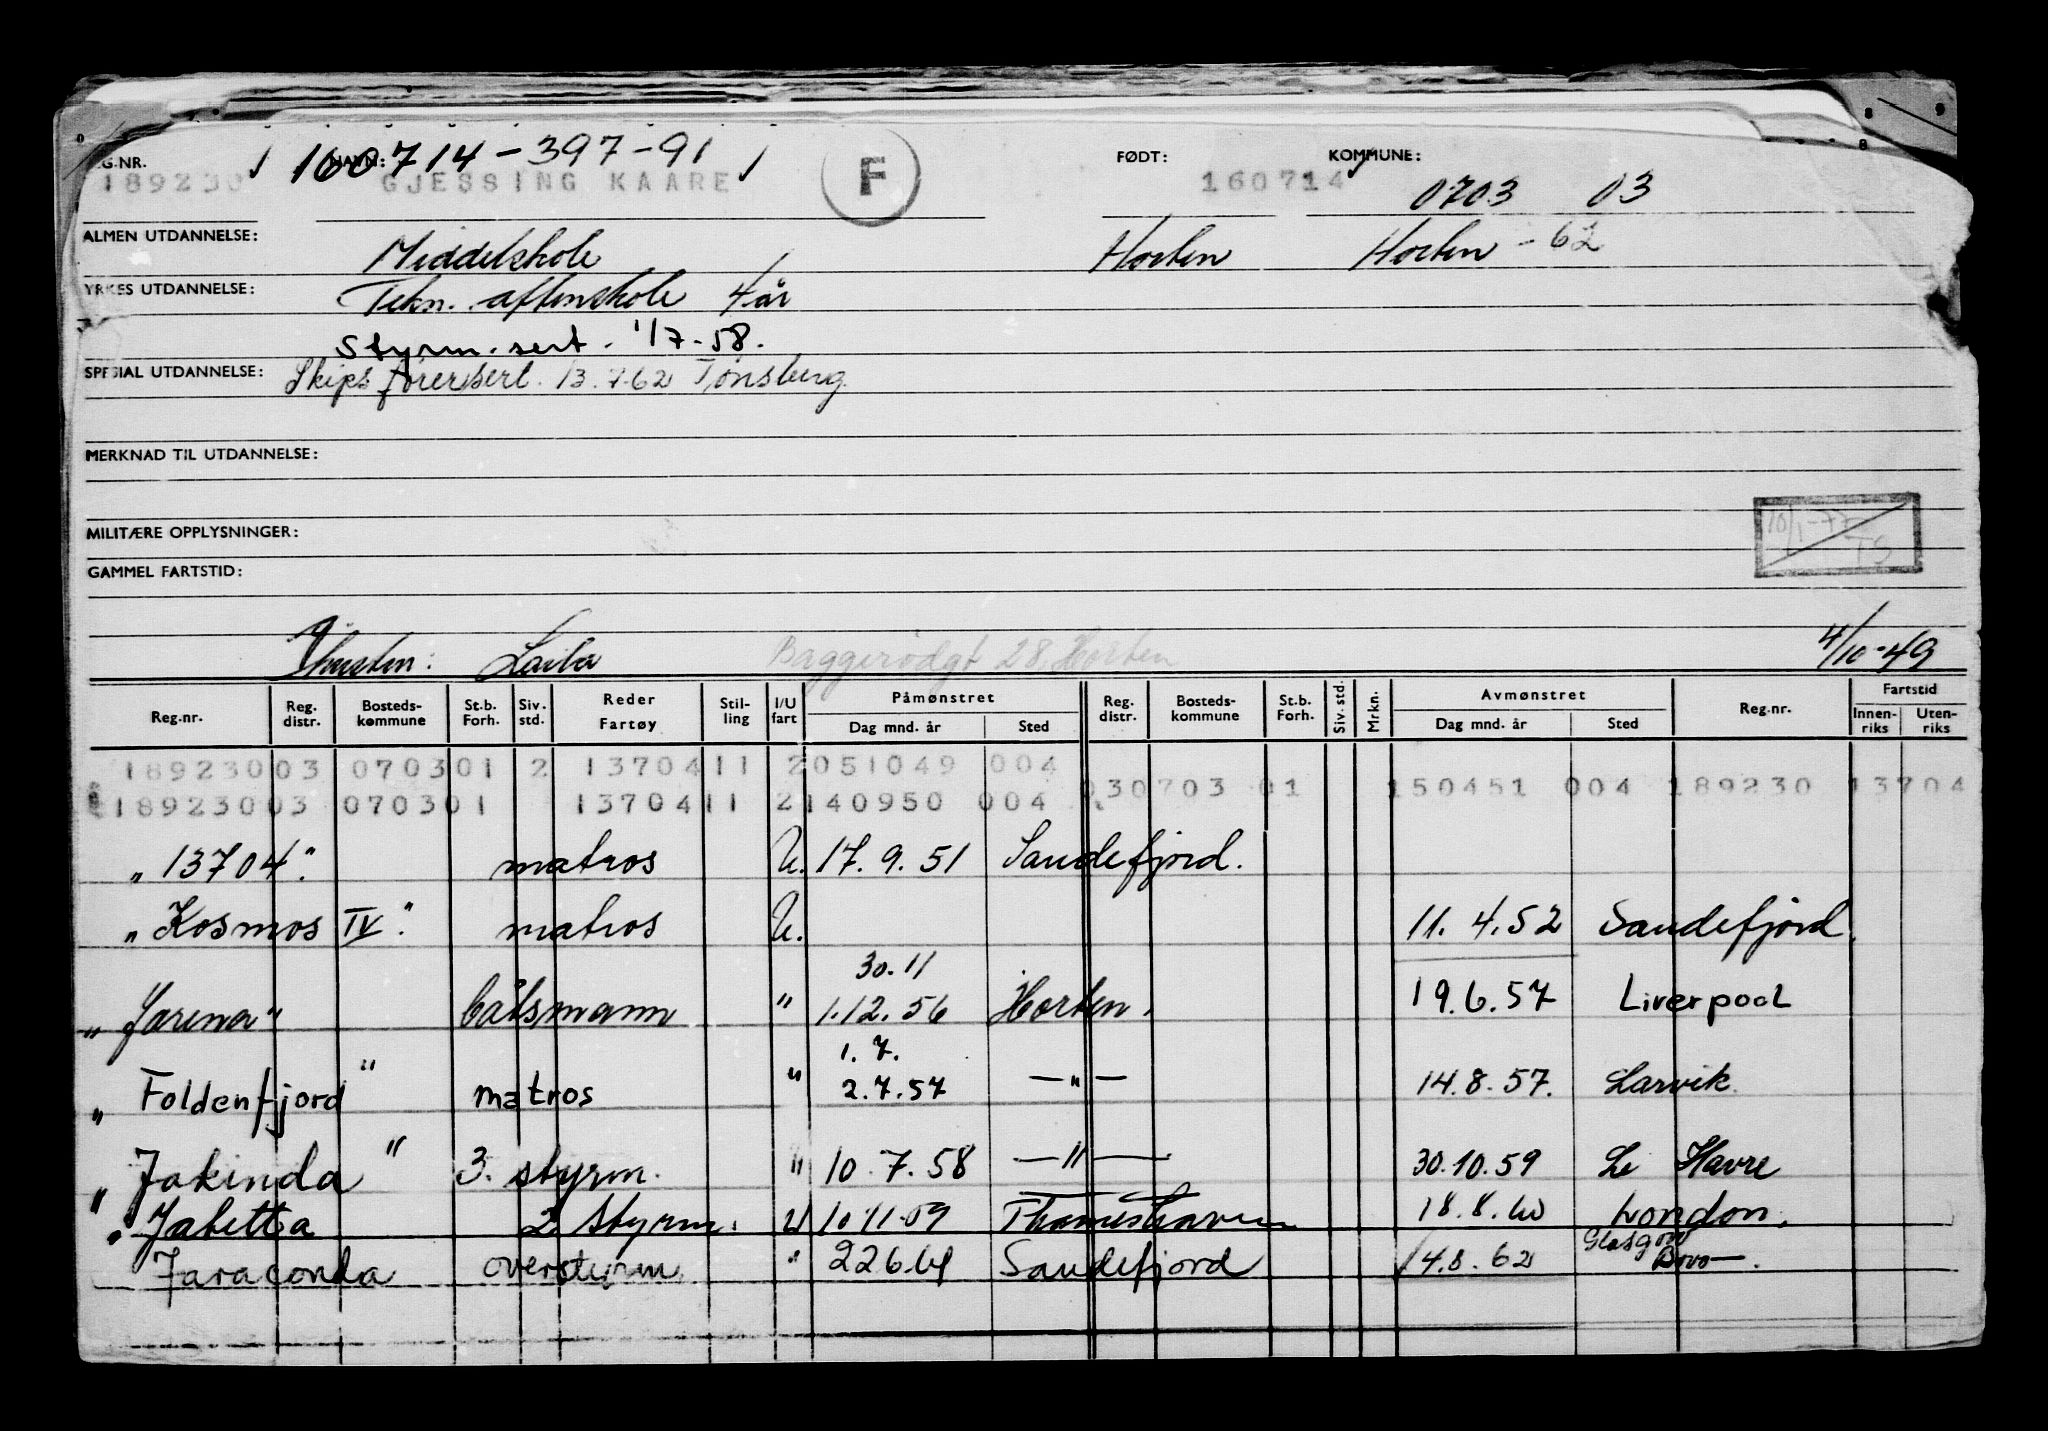 REG.NR. 160714-397-91 NAVN: F FØDT: KOMMUNE:
189230 GJESSING KAARE 160714 0703 03
ALMEN UTDANNELSE: Middelskole Horten Horten - 62
YRKES UTDANNELSE: Tekn. aftenskole 4 år
Styrm. sert. 1/7-58.
SPESIAL UTDANNELSE: Skipsførersert. 13.7.62 Tønsberg
MERKNAD TIL UTDANNELSE:
MILITÆRE OPPLYSNINGER: 10/1-77 TS
GAMMEL FARTSTID:
Hustru: Laila Baggerødgt 28, Horten 4/10-49
Reg.nr. Reg. distr. Bosteds-kommune St.b. Forh. Siv. std. Reder Fartøy Stil-ling I/U fart Påmønstret Dag mnd. år Sted Reg. distr. Bosteds-kommune St.b. Forh. Siv. std. Mrkn. Avmønstret Dag mnd. år Sted Reg.nr. Fartstid Innen-riks Uten-riks
18923003 070301 2 1370411 2051049 004
18923003 070301 1370411 2140950 004 030703 01 150451 004 189230 13704
"13704" matros U. 17.9.51 Sandefjord.
"Kosmos IV." matros U. 11.4.52 Sandefjord.
30.11
"Jarena" båtsmann " 1.12.56 Horten. 19.6.57 Liverpool
1.7.
"Foldenfjord" matros " 2.7.57 —"— 14.8.57. Larvik.
"Jakinda" 3. styrm. " 10.7.58 —"— 30.10.59 Le Havre
"Jabetta 2 styrm. U 10 11 59 Thameshaven 18.8.60 London.
Jaraconda overstyrm " 22661 Sandefjord 14.8.62 Glasgow